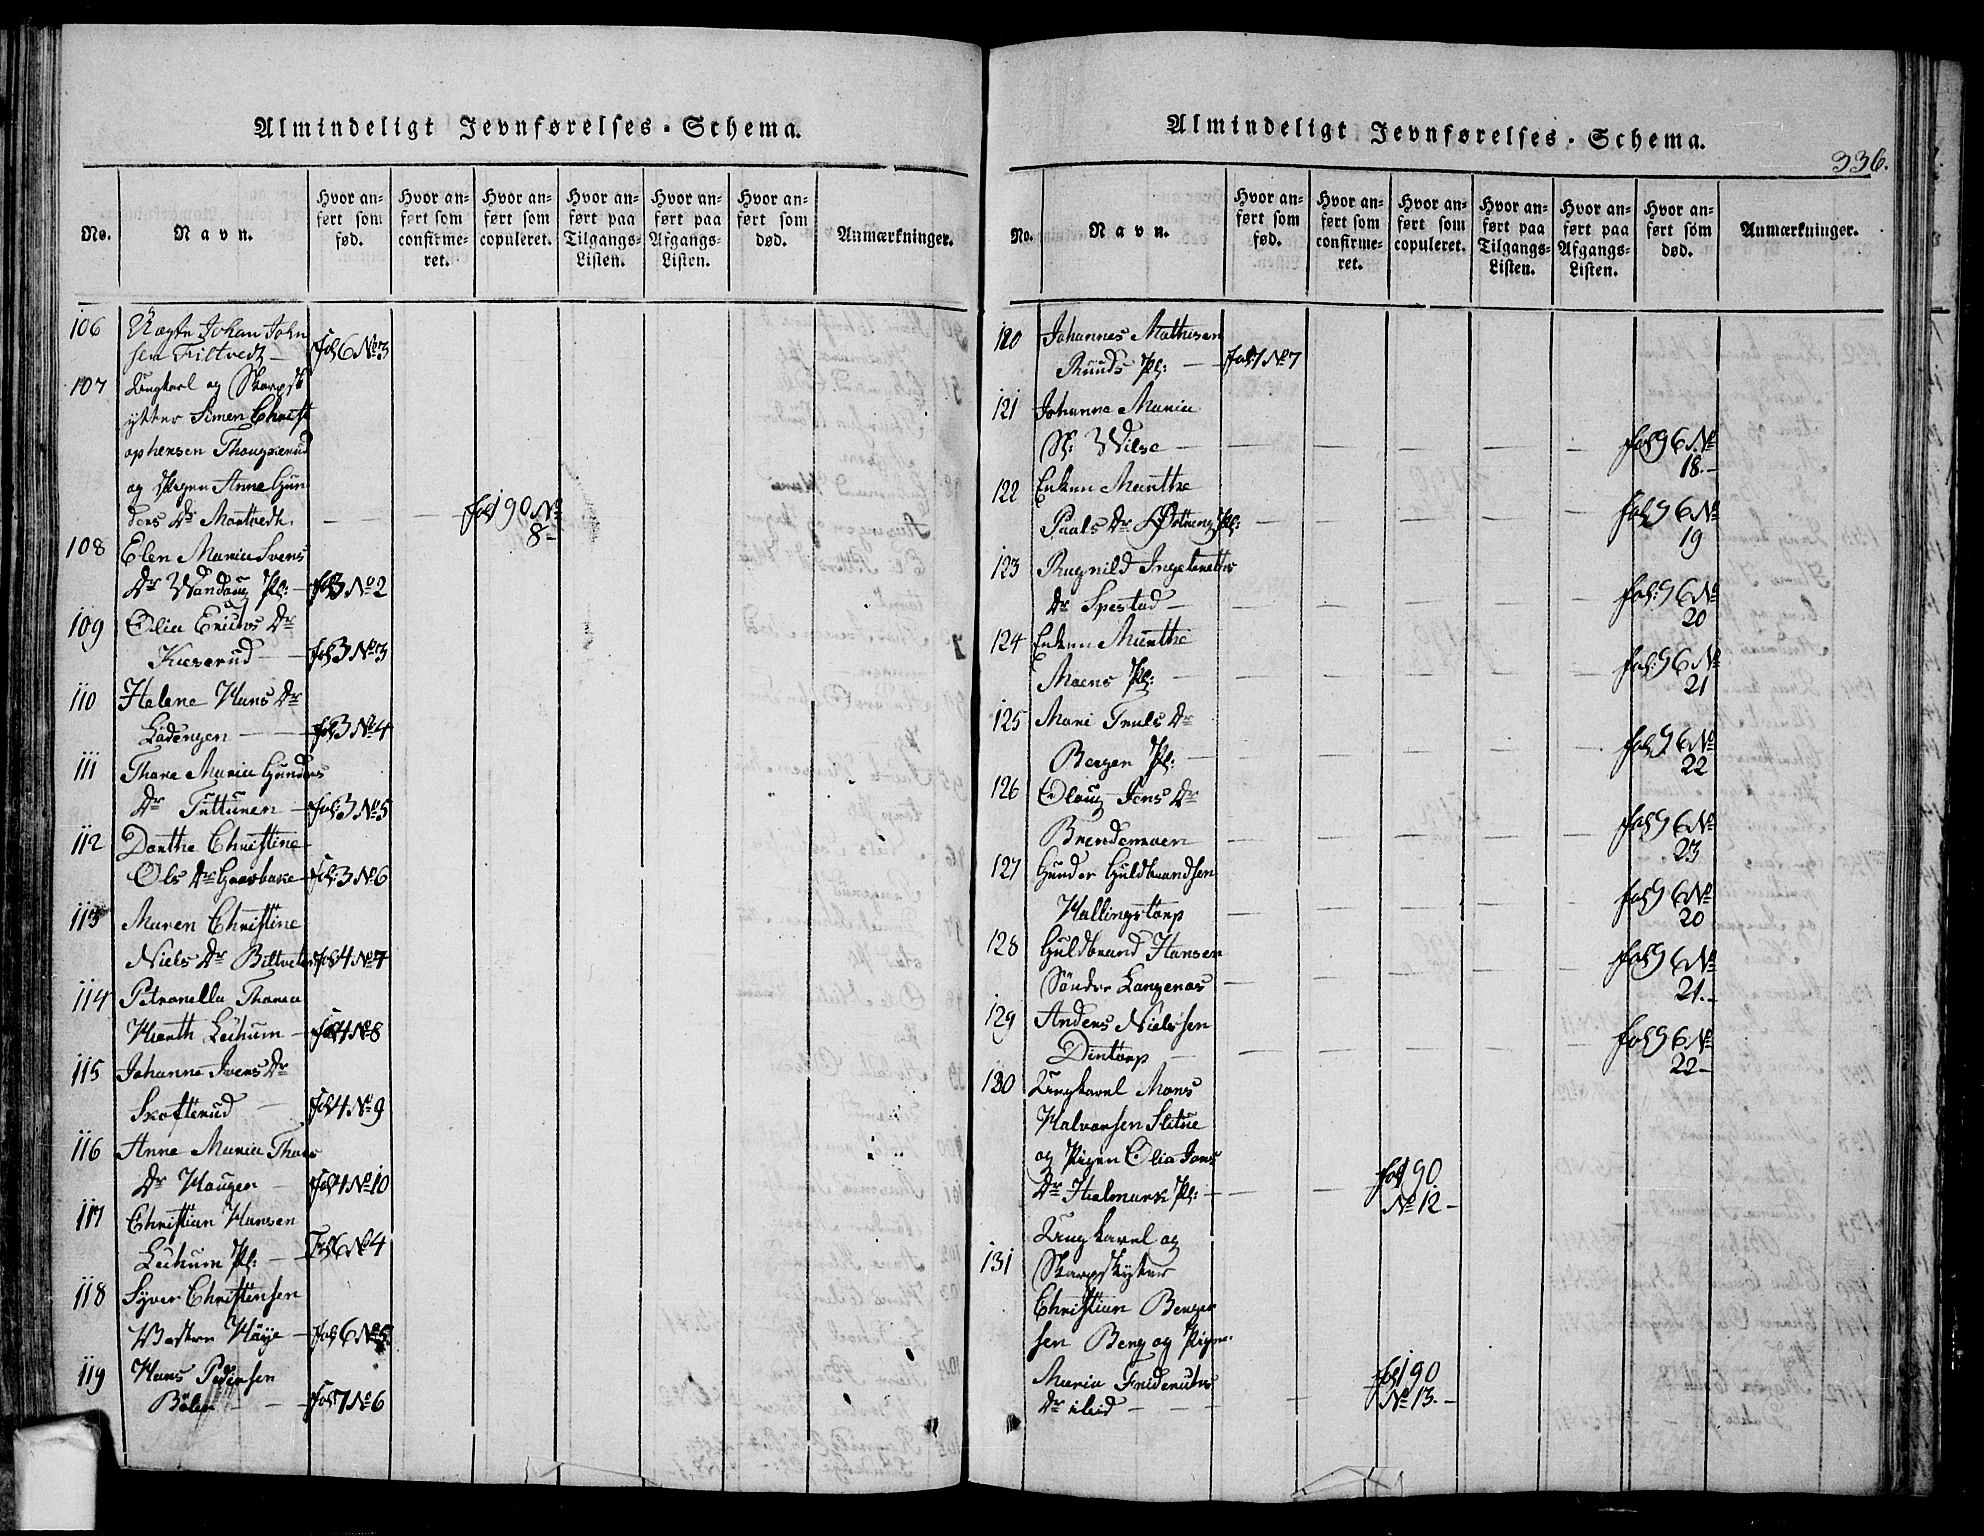 Almindeligt Jevnførelses-Schema.
No.
Navn.
Hvor an-
ført som
fød.
Hvor an-
ført som
confirme-
ret.
Hvor an-
ført som
copuleret.
Hvor an-
ført paa
Tilgangs-
Listen.
Hvor an-
ført paa
Afgangs-
Listen.
Hvor an-
ført som
død.
Anmærkninger.
106 Johan John
sen Filtvedt — Fol 6 No 3
107 Ungkarl og Skarpsk
ytter Simen Christ
ophersen
og Pigen Anne Gun
ders Dr — — — fol 90 No
8 —
108 Elen Maria Svens
Dr Pl: — fol 3 No 2
109 Olia Erichs Dr
— fol 3 No 3
110 Helene Hans Dr
Ladengen — — fol 3 No 4
111 Thore Maria Gunders
Dr Tuttunen — fol: 3 No 5
112 Dorthe Christine
Ols Dr — fol 3 No 6
113 Maren Christine
Niels Dr fol 4 No 7
114 Petronella Thorea
— fol 4 No 8
115 Johanne Ivers Dr
Skofterud — fol 4 No 9
116 Anne Maria Thors
Dr Hougen — fol 4 No 10
117 Christian Hansen
Pl: — Fol 6 No 4
118 Syver Christensen
Høye — fol 6 No 5
119 Hans Pedersen
Böler — — fol 7 No 6
Almindeligt Jevnførelses-Schema.
336.
No.
Navn.
Hvor an-
ført som
fød.
Hvor an-
ført som
confirme-
ret.
Hvor an-
ført som
copuleret.
Hvor an-
ført paa
Tilgangs-
Listen.
Hvor an-
ført paa
Afgangs-
Listen.
Hvor an-
ført som
død.
Anmærkninger.
120 Johannes Mathisen
Ruuds Pl: — fol 7 No 7
121 Johanne Maria
Wilse — — — — — — fol 96 No
18. —
122 Enken Marthe
Paals Dr Østeng Pl: — — — — — fol 96 No
19
123 Ragnild Ingebreths
Dr Spestad — — — — — — fol: 96 No
20
124 Enken Marthe
Moens Pl: — — — — — — fol: 96 No
21
125 Mari Truls Dr
Bergen Pl: — — — — — — fol 96 No
22
126 Oloug Jens Dr
Brendemoen — — — — — fol 96 No
23
127 Gunder Guldbrandsen
Hallingstorp — — — — — fol 96 No
20
128 Guldbrand Hansen
Söndre Langenæs — — — — — fol 96 No
21. —
129 Anders Nielssen
Dintorp — — — — — — fol 96 No
22 —
130 Ungkarl Mons
Halvorsen Slitue
og Pigen Olia Jons
Dr Hielmark Pl: — — — fol 90
No 12 —
Ungkarl og
131 Skarpskytter
Christian Berger
sen Berg og Pigen
Maria Friderichs
Dr ibid — — — — fol 90
No 13. —